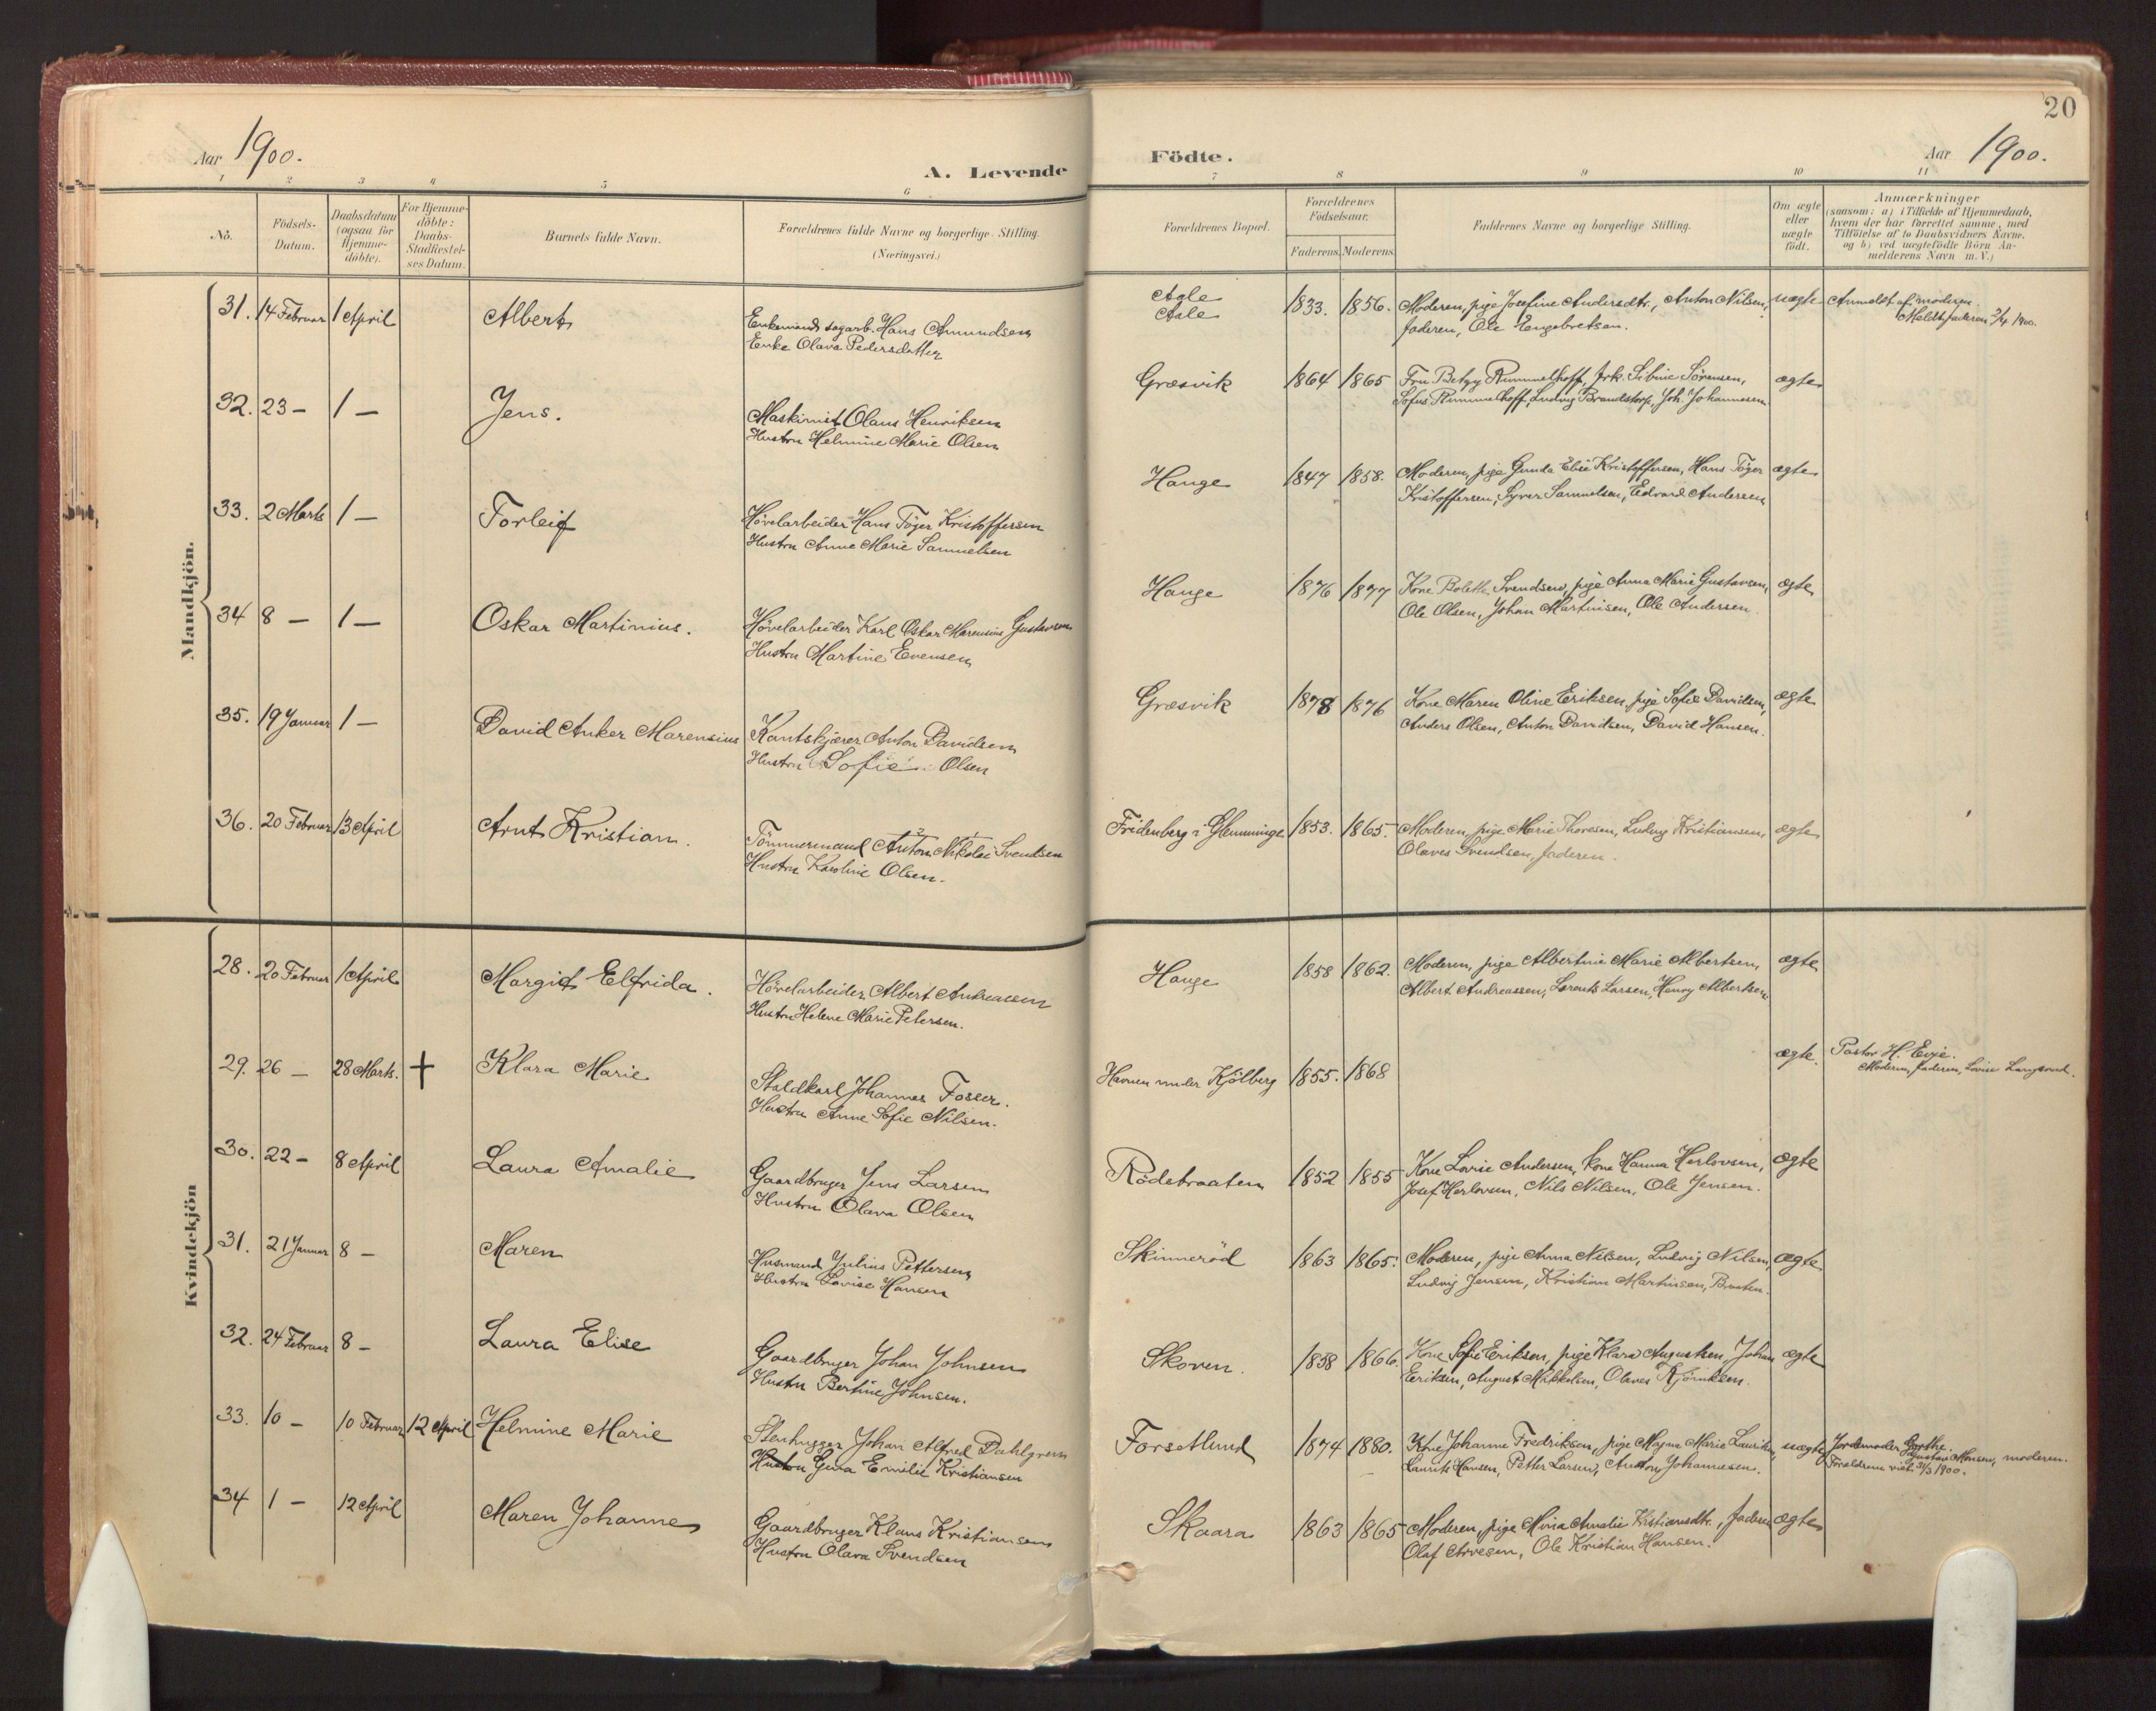 20
Aar 1900.
A. Levende
Födte.
Aar 1900.
1 2 3 4 5 6 7 8 9 10 11
No.
Födsels-Datum.
Daabsdatum (ogsaa for Hjemme-döbte).
For Hjemme-döbte: Daabs-Stadfæstel-ses Datum.
Barnets fulde Navn.
Forældrenes fulde Navne og borgerlige Stilling. (Næringsvei.)
Forældrenes Bopæl.
Forældrenes Födselsaar.
Faderens. Moderens.
Faddernes Navne og borgerlige Stilling.
Om ægte eller uægte født.
Anmærkninger
(saasom: a) i Tilfælde af Hjemmedaab,
hvem der har forrettet samme, med
Tilföielse af to Daabsvidners Navne.
og b) ved uægtefödte Börn An-
melderens Navn m. V.)
Mandkjön.
31. 14 Februar 1 April Albert Enkemand sagarb. Hans Amundsen
Enke Olava Pedersdatter
Aale
Aale
1833. 1856. Moderen, pige Josefine Andersdtr., Anton Nilsen,
faderen, Ole Engebretsen.
uægte Anmeldt af moderen.
Meldt faderen 2/4 1900.
32. 23 – 1 – Jens. Maskinist Olaus Henriksen
Hustru Helmine Marie Olsen
Græsvik 1864 1865 Fru Betzy Rummelhoff, frk. Sibine Sørensen,
Sofus Rummelhoff, Ludvig Brandstorp, Joh. Johannesen.
ægte
33. 2 Marts 1 – Torleif Høvelarbeider Hans Töger Kristoffersen
Hustru Anne Marie Samuelsen
Hauge 1847 1858. Moderen, pige Gunda Elise Kristoffersen, Hans Töger
Kristoffersen, Syver Samuelsen, Edvard Andersen
ægte
34 8 – 1 – Oskar Martinius. Høvelarbeider Karl Oskar Marensius Gustavsen
Hustru Martine Evensen
Hauge 1876 1877 Kone Boleth Svendsen, pige Anna Marie Gustavsen,
Ole Olsen, Johan Martinsen, Ole Andersen.
ægte
35. 19 Januar 1 – David Anker Marensius Kantskjærer Anton Davidsen
Hustru Sofie Olsen
Græsvik 1878 1876 Kone Maren Oline Eriksen, pige Sofie Davidsen,
Anders Olsen, Anton Davidsen, David Hansen.
ægte
36. 20 Februar 13 April Arnt Kristian. Tömmermand Anton Nikolai Svendsen
Hustru Karoline Olsen.
Fridenberg i Glemminge 1853. 1865. Moderen, pige Marie Thoresen, Ludvig Kristiansen,
Olaves Svendsen, faderen.
ægte
Kvindekjön
28. 20 Februar 1 April Margit Elfrida. Høvelarbeider Albert Andreassen
Hustru Helene Marie Petersen.
Hauge 1858 1862. Moderen, pige Albertine Marie Albertsen,
Albert Andreassen, Lorents Larsen, Henry Albertsen.
ægte
29. 26 – 28 Marts. + Klara Marie Staldkarl Johannes Fosser.
Hustru Anne Sofie Nilsen.
Havnen under Kjölberg 1855. 1868
ægte. Pastor H. Evje.
Moderen, faderen, Lovise Langsrud.
30. 22 – 8 April Laura Amalie Gaardbruger Jens Larsen
Hustru Olava Olsen
Rödsbraaten 1852 1855 Kone Lovise Andersen, kone Hanna Herlovsen,
Josef Herlovsen, Nils Nilsen, Ole Jensen.
ægte
31. 21 Januar 8 – Maren Husmand Julius Pettersen
Hustru Lovise Hansen
Skinneröd 1863 1865. Moderen, pige Anna Nilsen, Ludvig Nilsen,
Ludvig Jensen, Kristian Martinsen, Braaten.
ægte
32. 24 Februar 8 – Laura Elise Gaardbruger Johan Johnsen
Hustru Bertine Johnsen.
Skoven. 1858 1866. Kone Sofie Eriksen, pige Klara Augustsen, Johan
Eriksen, August Mikkelsen, Olaves
ægte
33. 10 – 10 Februar 12 April Helmine Marie Stenhugger Johan Alfred Dahlgren
Hustru Gina Emilie Kristiansen
Forsetlund 1874 1880. Kone Johanne Fredriksen, pige Magna Marie Lauritsen,
Laurits Hansen, Petter Larsen, Anton Johannesen.
uægte Jordemoder Gorthe
Gustava Monsen, moderen.
Forældrene viet 31/3 1900.
34 1 – 12 April Maren Johanne Gaardbruger Klaus Kristiansen
Hustru Olava Svendsen
Skaara 1863 1865 Moderen, pige Mina Amalie Kristiansdtr., faderen
Olaf Arvesen, Ole Kristian Hansen.
ægte